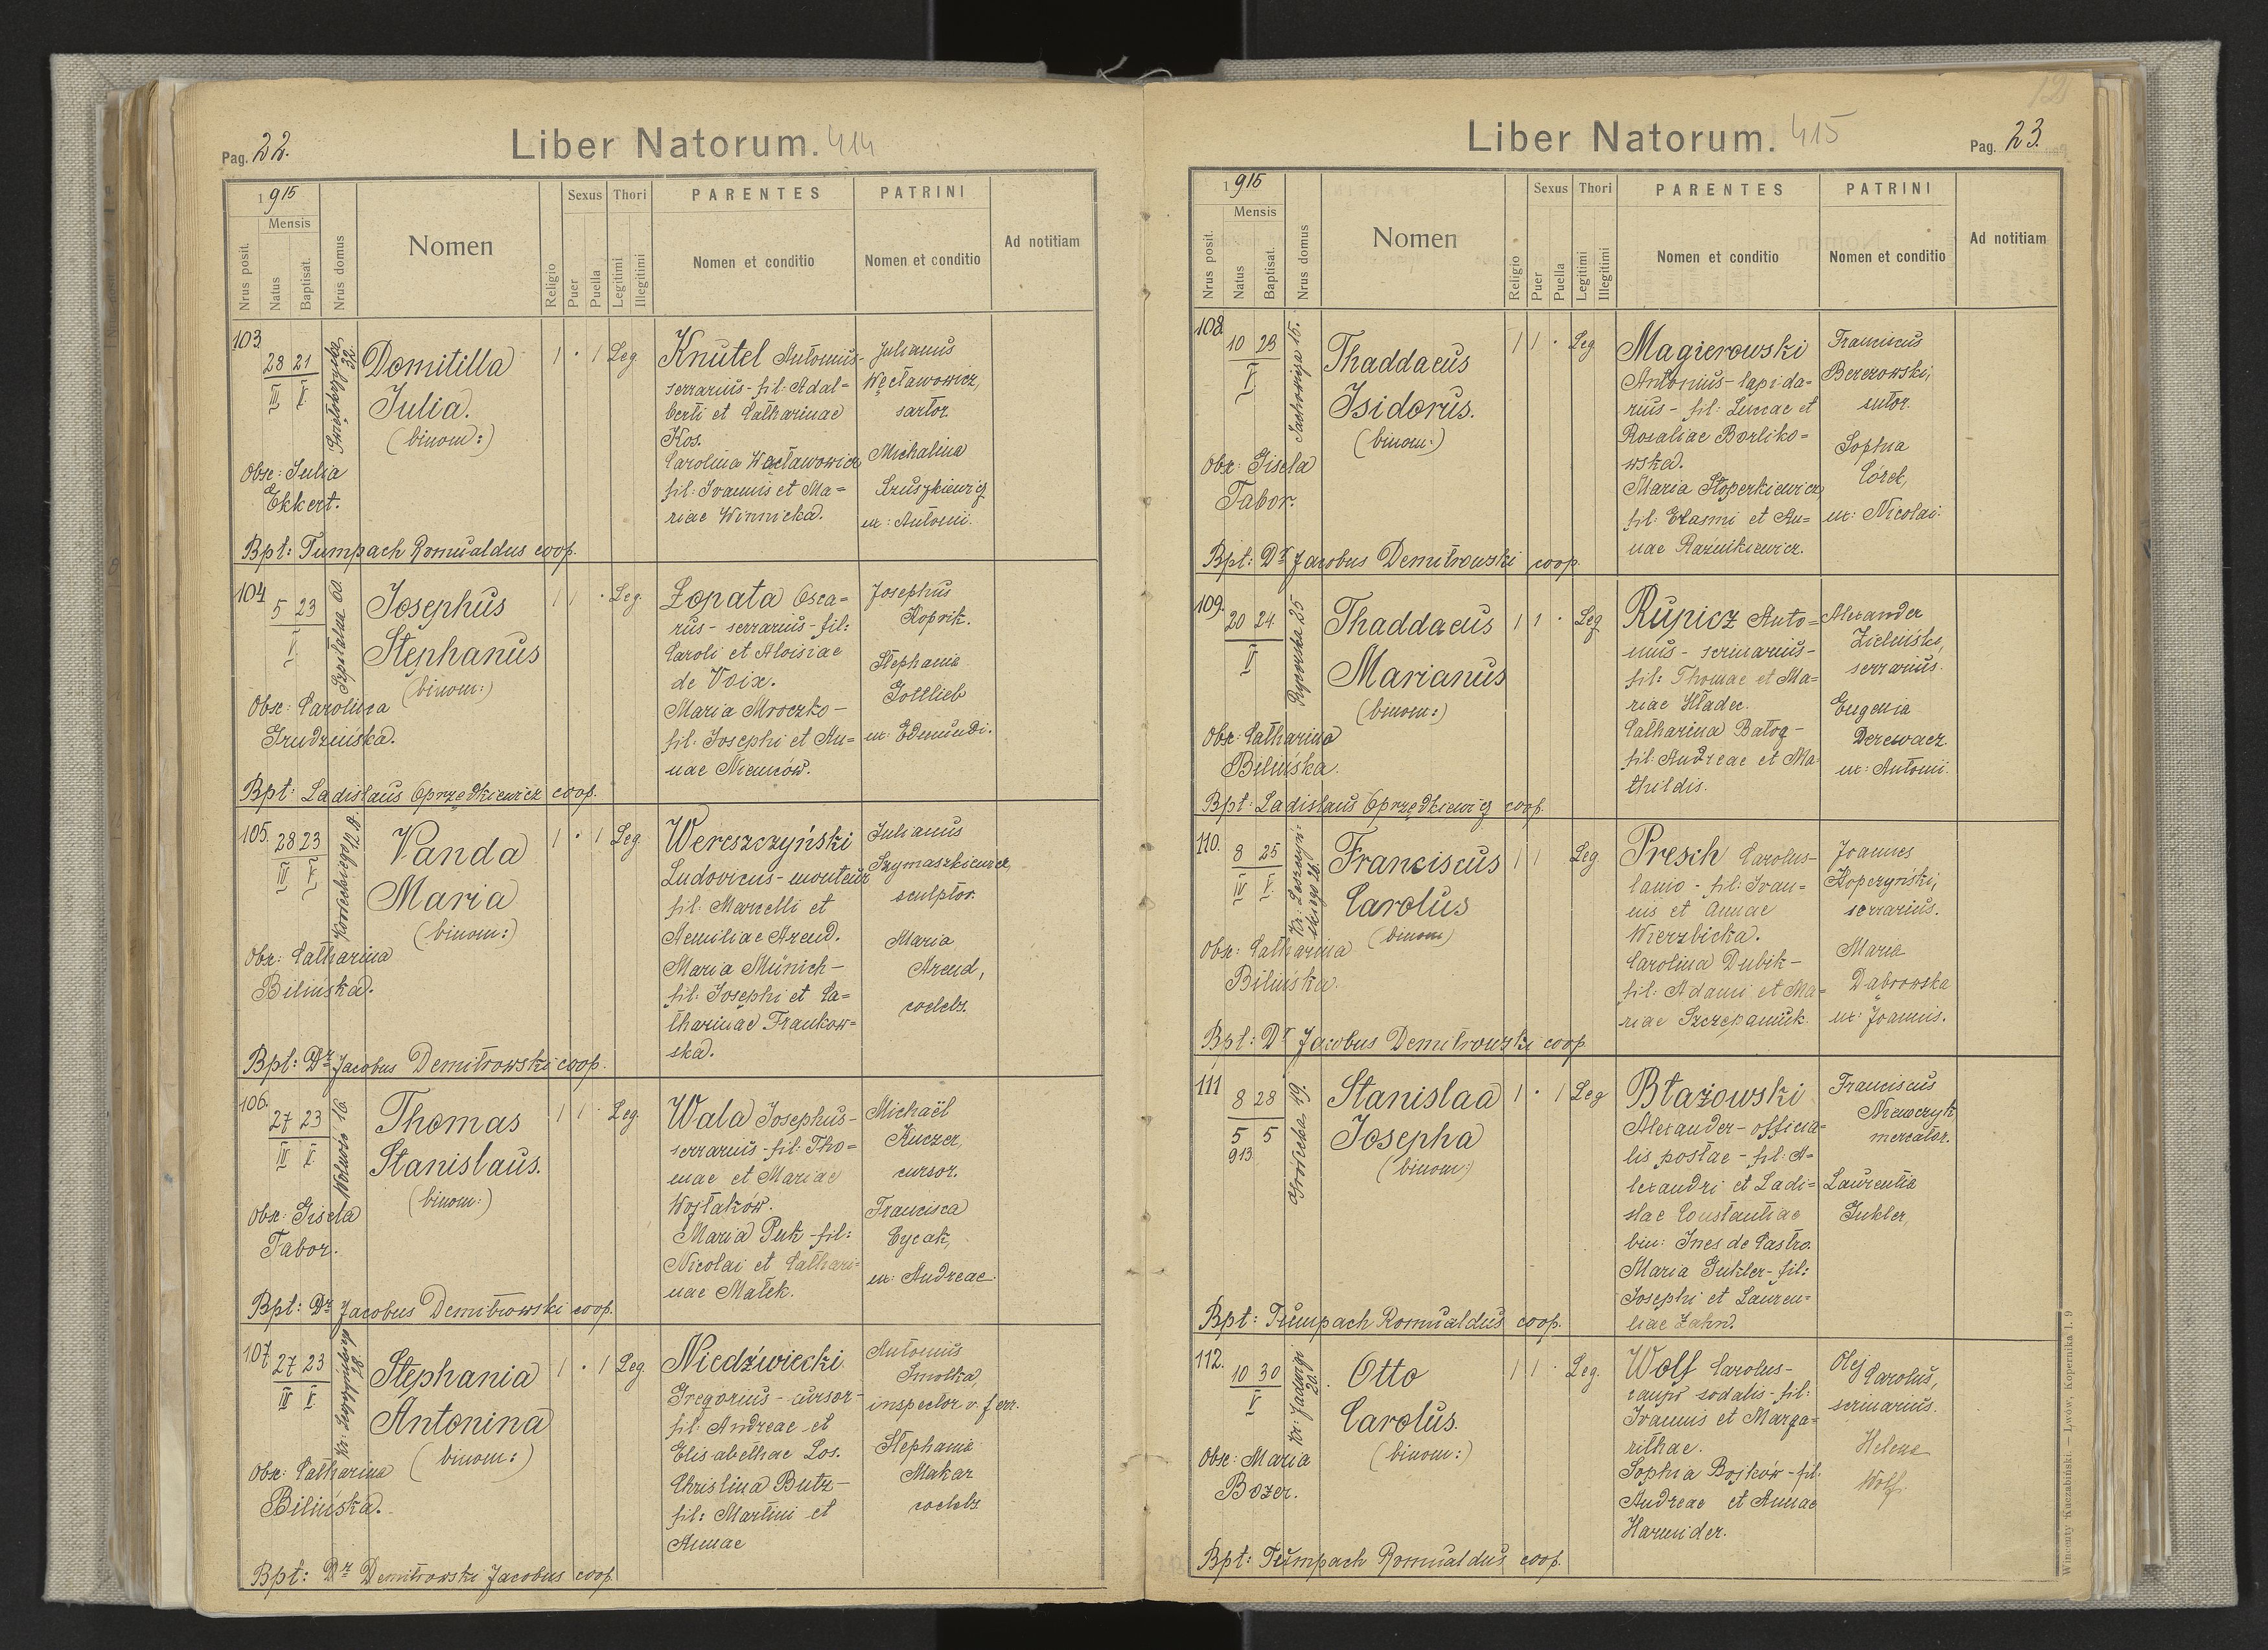 Pag. 22.
Liber Natorum. 414
1915
Mensis
Nrus posit.
Natus
Baptisat.
Nrus domus
Nomen
Religio
Sexus
Puer
Puella
Thori
Legitimi
Illegitimi
PARENTES
Nomen et conditio
PATRINI
Nomen et conditio
Ad notitiam
103.
28 21
III V
32.
Domitilla
Julia.
(binom:)
1 · 1 Leg
Knutel Antonius-
serrarius - fil: Adal=
berti et Catharinae
Kos.
Carolina Wacławowicz
fil: Ioannis et Ma=
riae Winnicka.
Julianus
Węcławowicz,
sartor.
Michalina
Szuszkiewicz
ux: Antonii.
Obst: Julia
Ekkert.
Bpt: Tumpach Romualdus coop.
104
5 23
V
Szpitalna 60.
Josephus
Stephanus
(binom:)
1 1 · Leg.
Zopata Osca=
rus - serrarius - fil:
Caroli et Aloisiae
de Voix.
Maria Mroczko -
fil: Josephi et An=
nae Niemców.
Josephus
Koprik.
Stephania
Gottlieb
ux: Edmundi.
Obst: Carolina
Grudzińska.
Bpt: Ladislaus Oprzędkiewicz coop.
105.
28 23
IV V
Korzeckiego 12 A.
Vanda
Maria
(binom:)
1 · 1 Leg.
Wereszczyński
Ludovicus - monteur
fil: Marcelli et
Aemiliae Arend.
Maria Münich -
fil: Josephi et Ca=
tharinae Frankow=
ska.
Julianus
Szymaszkiewicz,
sculptor.
Maria
Arend,
coelebs.
Obst: Catharina
Bilińska.
Bpt: Dr Jacobus Demitrowski coop.
106.
27 23
IV V
Wolność 16.
Thomas
Stanislaus.
(binom:)
1 1 · Leg
Wala Josephus -
serrarius - fil: Tho=
mae et Mariae
Wojtaków.
Maria Puk - fil:
Nicolai et Cathari=
nae Małek.
Michaël
Kuczer,
cursor.
Francisca
Cycak,
ux: Andreae.
Obst: Gisela
Tabor.
Bpt: Dr Jacobus Demitrowski coop.
107
27 23
IV V
18.
Stephania
Antonina
(binom:)
1 · 1 Leg.
Niedźwiecki
Gregorius - cursor -
fil: Andreae et
Elisabethae Los.
Christina Butz -
fil: Martini et
Annae
Antonius
Smolka,
inspector v. ferr.
Stephania
Makar
coelebs
Obst: Catharina
Bilińska.
Bpt: Dr Demitrowski Jacobus coop.
12
Liber Natorum. 415
Pag. 23.
1915
Mensis
Nrus posit.
Natus
Baptisat.
Nrus domus
Nomen
Religio
Sexus
Puer
Puella
Thori
Legitimi
Illegitimi
PARENTES
Nomen et conditio
PATRINI
Nomen et conditio
Ad notitiam
108.
10 23
V
Sacharowicza 15.
Thaddaeus
Isidorus.
(binom:)
1 1 · Leg
Magierowski
Antonius - lapida=
rius - fil: Lucae et
Rosaliae Borliko=
wska.
Maria Stoperkiewicz
fil: Erasmi et An=
nae Raźnikiewicz.
Franciscus
Berezowski,
sutor.
Sophia
Córek,
ux: Nicolai.
Obst: Gisela
Tabor.
Bpt: Dr Jacobus Demitrowski coop.
109.
20 24
V
Rycerska 35
Thaddaeus
Marianus
(binom:)
1 1 · Leg
Rupicz Anto=
nius - scrinarius -
fil: Thomae et Ma=
riae Hładec.
Catharina Batog -
fil: Andreae et Ma=
thildis.
Alexander
Zieliński,
serrarius.
Eugenia
Derewacz.
ux: Antonii.
Obst: Catharina
Bilińska.
Bpt: Ladislaus Oprzędkiewicz coop.
110.
8 25
IV V
Kr: Leszczyń-
skiego 26.
Franciscus
Carolus
(binom)
1 1 Leg.
Presch Carolus -
lanio - fil: Ioan=
nis et Annae
Wierzbicka.
Carolina Dubik -
fil: Adami et Ma=
riae Szczepaniuk.
Joannes
Kopczyński,
serrarius.
Maria
Dąbrowska
ux: Joannis.
Obst: Catharina
Bilińska.
Bpt: Dr Jacobus Demitrowski coop.
111
8 28
5 5
913
Gródecka 19.
Stanislaa
Josepha
(binom:)
1 · 1 Leg
Błażowski
Alexander - officia=
lis postae - fil: A=
lexandri et Ladi=
slae Constantiae
bin: Ines de Castro.
Maria Gukler - fil:
Josephi et Lauren=
tiae Zahn.
Franciscus
Niewczyk
mercator.
Laurentia
Gukler,
Bpt: Tumpach Romualdus coop.
112.
10 30
V
Kr: Jadwigi
20.
Otto
Carolus.
(binom:)
1 1 · Leg.
Wolf Carolus -
caupo sodalis - fil:
Ioannis et Marga=
rithae.
Sophia Bojków - fil.
Andreae et Annae
Harnider.
Olej Carolus,
scrinarius.
Helena
Wolf.
Obst: Maria
Bozer.
Bpt: Tumpach Romualdus coop.
Wincenty Kuczabiński. — Lwów, Kopernika l. 9